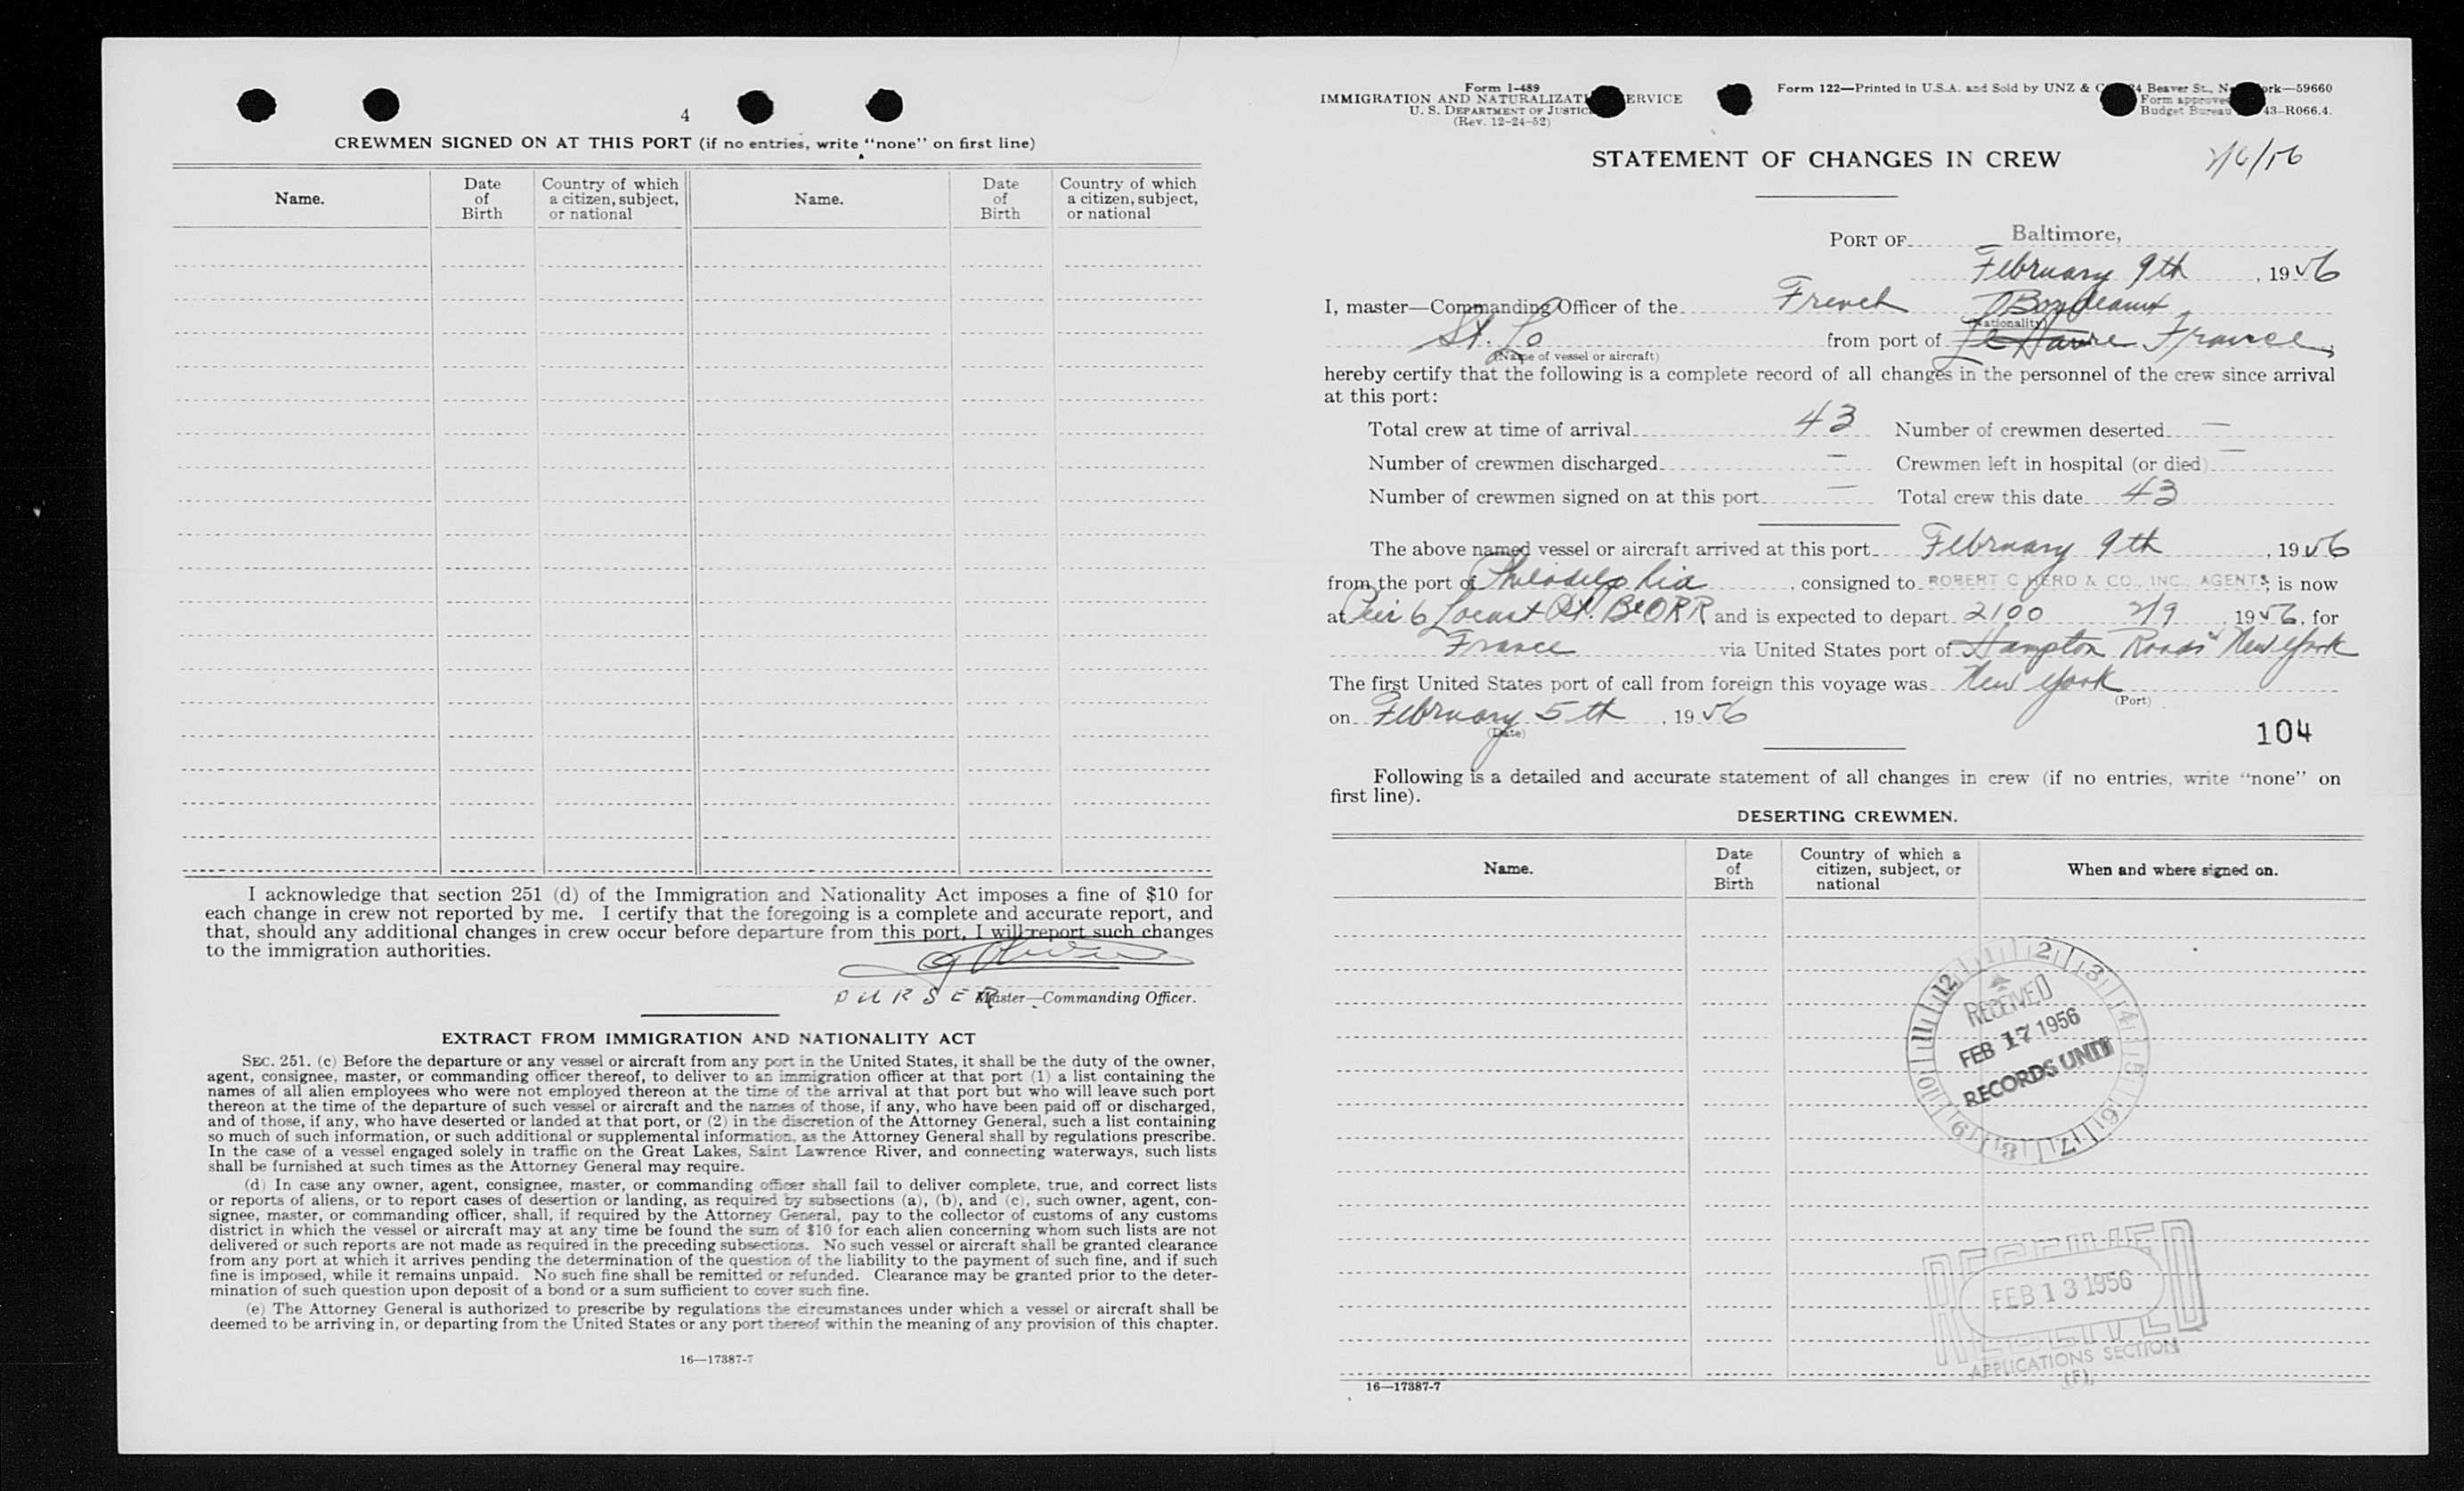 4
CREWMEN SIGNED ON AT THIS PORT (if no entries, write "none" on first line)
Name. Date of Birth Country of which a citizen, subject, or national Name. Date of Birth Country of which a citizen, subject, or national
I acknowledge that section 251 (d) of the Immigration and Nationality Act imposes a fine of $10 for
each change in crew not reported by me. I certify that the foregoing is a complete and accurate report, and
that, should any additional changes in crew occur before departure from this port, I will report such changes
to the immigration authorities.
PURSER. Master—Commanding Officer.
EXTRACT FROM IMMIGRATION AND NATIONALITY ACT
SEC. 251. (c) Before the departure or any vessel or aircraft from any port in the United States, it shall be the duty of the owner,
agent, consignee, master, or commanding officer thereof, to deliver to an immigration officer at that port (1) a list containing the
names of all alien employees who were not employed thereon at the time of the arrival at that port but who will leave such port
thereon at the time of the departure of such vessel or aircraft and the names of those, if any, who have been paid off or discharged,
and of those, if any, who have deserted or landed at that port, or (2) in the discretion of the Attorney General, such a list containing
so much of such information, or such additional or supplemental information, as the Attorney General shall by regulations prescribe.
In the case of a vessel engaged solely in traffic on the Great Lakes, Saint Lawrence River, and connecting waterways, such lists
shall be furnished at such times as the Attorney General may require.
(d) In case any owner, agent, consignee, master, or commanding officer shall fail to deliver complete, true, and correct lists
or reports of aliens, or to report cases of desertion or landing, as required by subsections (a), (b), and (c), such owner, agent, con-
signee, master, or commanding officer, shall, if required by the Attorney General, pay to the collector of customs of any customs
district in which the vessel or aircraft may at any time be found the sum of $10 for each alien concerning whom such lists are not
delivered or such reports are not made as required in the preceding subsections. No such vessel or aircraft shall be granted clearance
from any port at which it arrives pending the determination of the question of the liability to the payment of such fine, and if such
fine is imposed, while it remains unpaid. No such fine shall be remitted or refunded. Clearance may be granted prior to the deter-
mination of such question upon deposit of a bond or a sum sufficient to cover such fine.
(e) The Attorney General is authorized to prescribe by regulations the circumstances under which a vessel or aircraft shall be
deemed to be arriving in, or departing from the United States or any port thereof within the meaning of any provision of this chapter.
16—17387-7
Form I-489
IMMIGRATION AND NATURALIZATI ERVICE
U. S. DEPARTMENT OF JUSTIC
(Rev. 12-24-52)
Form 122—Printed in U.S.A. and Sold by UNZ & C 24 Beaver St., N ork—59660
Form approve
Budget Bureau 43-R066.4.
STATEMENT OF CHANGES IN CREW
PORT OF Baltimore,
February 9th, 1956
I, master—Commanding Officer of the French Bordeaux
(Nationality)
St. Lo from port of Le Havre France,
(Name of vessel or aircraft)
hereby certify that the following is a complete record of all changes in the personnel of the crew since arrival
at this port:
Total crew at time of arrival 43 Number of crewmen deserted —
Number of crewmen discharged — Crewmen left in hospital (or died) —
Number of crewmen signed on at this port — Total crew this date 43
The above named vessel or aircraft arrived at this port February 9th, 1956
from the port of Philadelphia, consigned to ROBERT C HERD & CO., INC., AGENTS; is now
at Peir 6 Locust Pt. B&ORR and is expected to depart 2100 2/9 1956, for
France via United States port of Hampton Roads New York
The first United States port of call from foreign this voyage was New York
(Port)
on February 5th, 1956
(Date)
104
Following is a detailed and accurate statement of all changes in crew (if no entries, write "none" on
first line).
DESERTING CREWMEN.
Name. Date of Birth Country of which a citizen, subject, or national When and where signed on.
12 1 2 3 4 5 6 7 8 9 10 11
RECEIVED
FEB 17 1956
RECORDS UNIT
RECEIVED
FEB 13 1956
RECEIVED
APPLICATIONS SECTION
(F)
16—17387-7